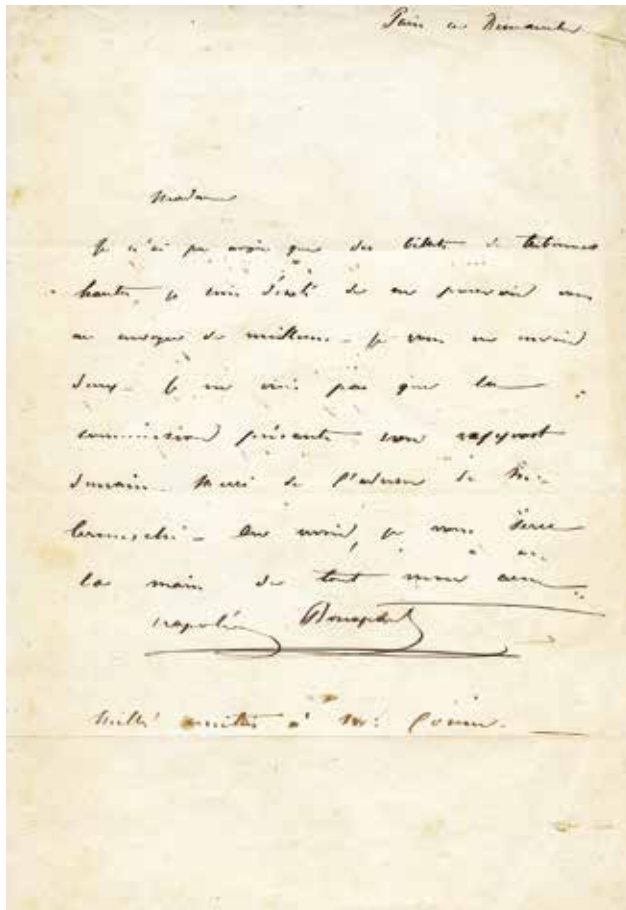 Paris ce Dimanche
Madame
Je n'ai pu avoir que des billets de tribunes
hautes, je suis désolé de ne pouvoir vous
en envoyer de meilleurs. Je vous en envoie
deux. Je ne crois pas que la
commission présente son rapport
demain. Merci de l'adresse de Mr.
Cernuschi. Au revoir, je vous serre
la main de tout mon cœur
Napoléon Bonaparte
Mille amitiés à Mr.